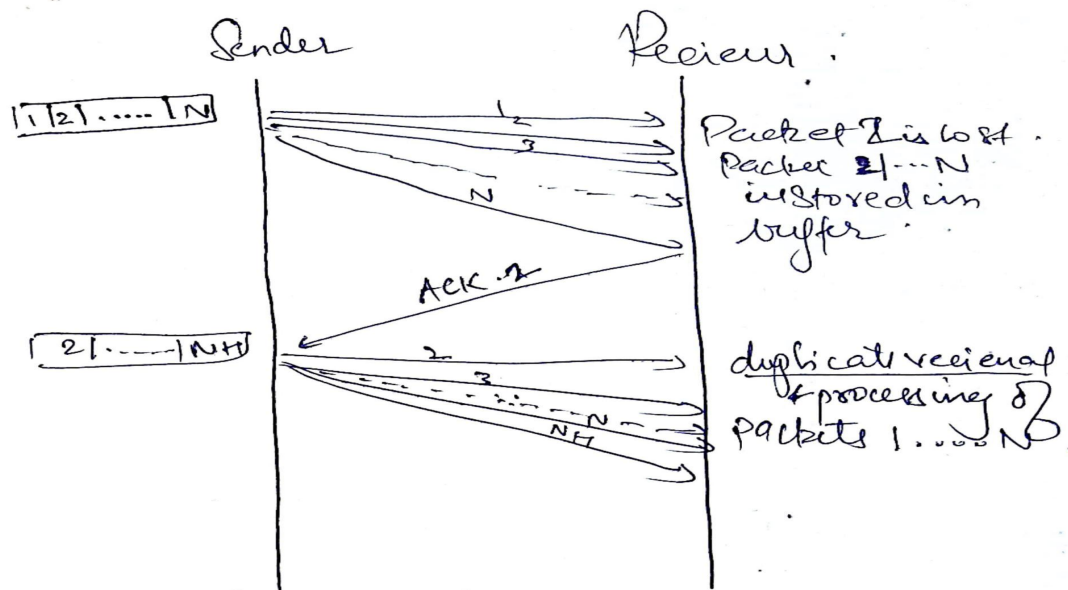 Sender
Recieur.
1|2|.....|N
1
2
3
N
Packet 2 is lost.
Packer 2|...N
is stored in
buffer.
ACK.2
2|.....|NH
2
3
N
NH
duplicate
& processing of
Packets 1.....N